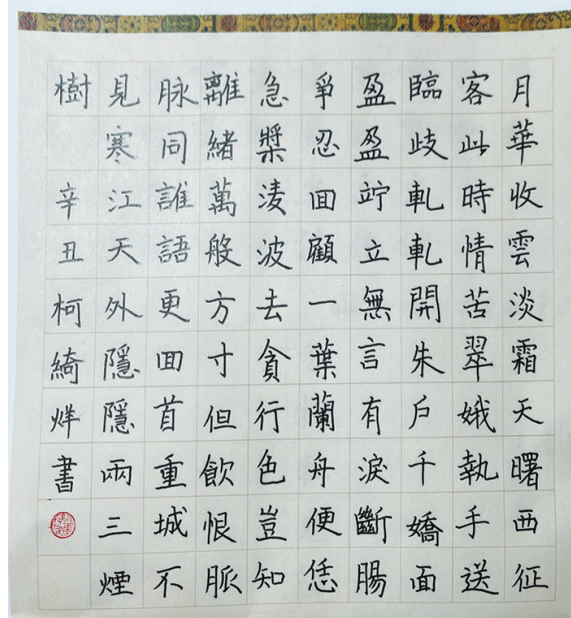 月華收雲淡霜天曙西征
客此時情苦翠娥執手送
臨歧軋軋開朱戶千嬌面
盈盈竚立無言有淚斷腸
爭忍回顧一葉蘭舟便恁
急槳淩波去貪行色豈知
離緒萬般方寸但飲恨脈
脉同誰語更回首重城不
見寒江天外隱隱兩三煙
樹 辛丑柯綺烊書